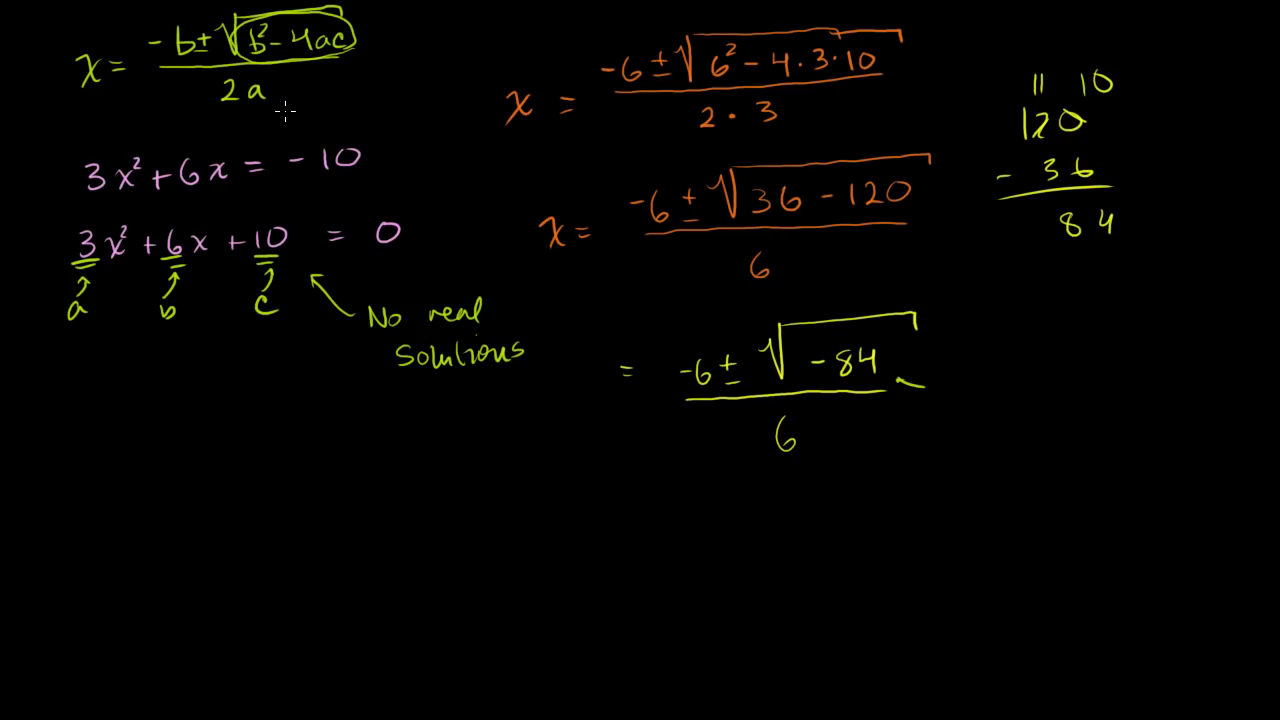 x = (-b ± √(b² - 4ac)) / 2a
3x² + 6x = -10
3x² + 6x + 10 = 0
a b c
No real
solutions
x = (-6 ± √(6² - 4·3·10)) / (2·3)
x = (-6 ± √(36 - 120)) / 6
= (-6 ± √(-84)) / 6
11 10
120
- 36
84